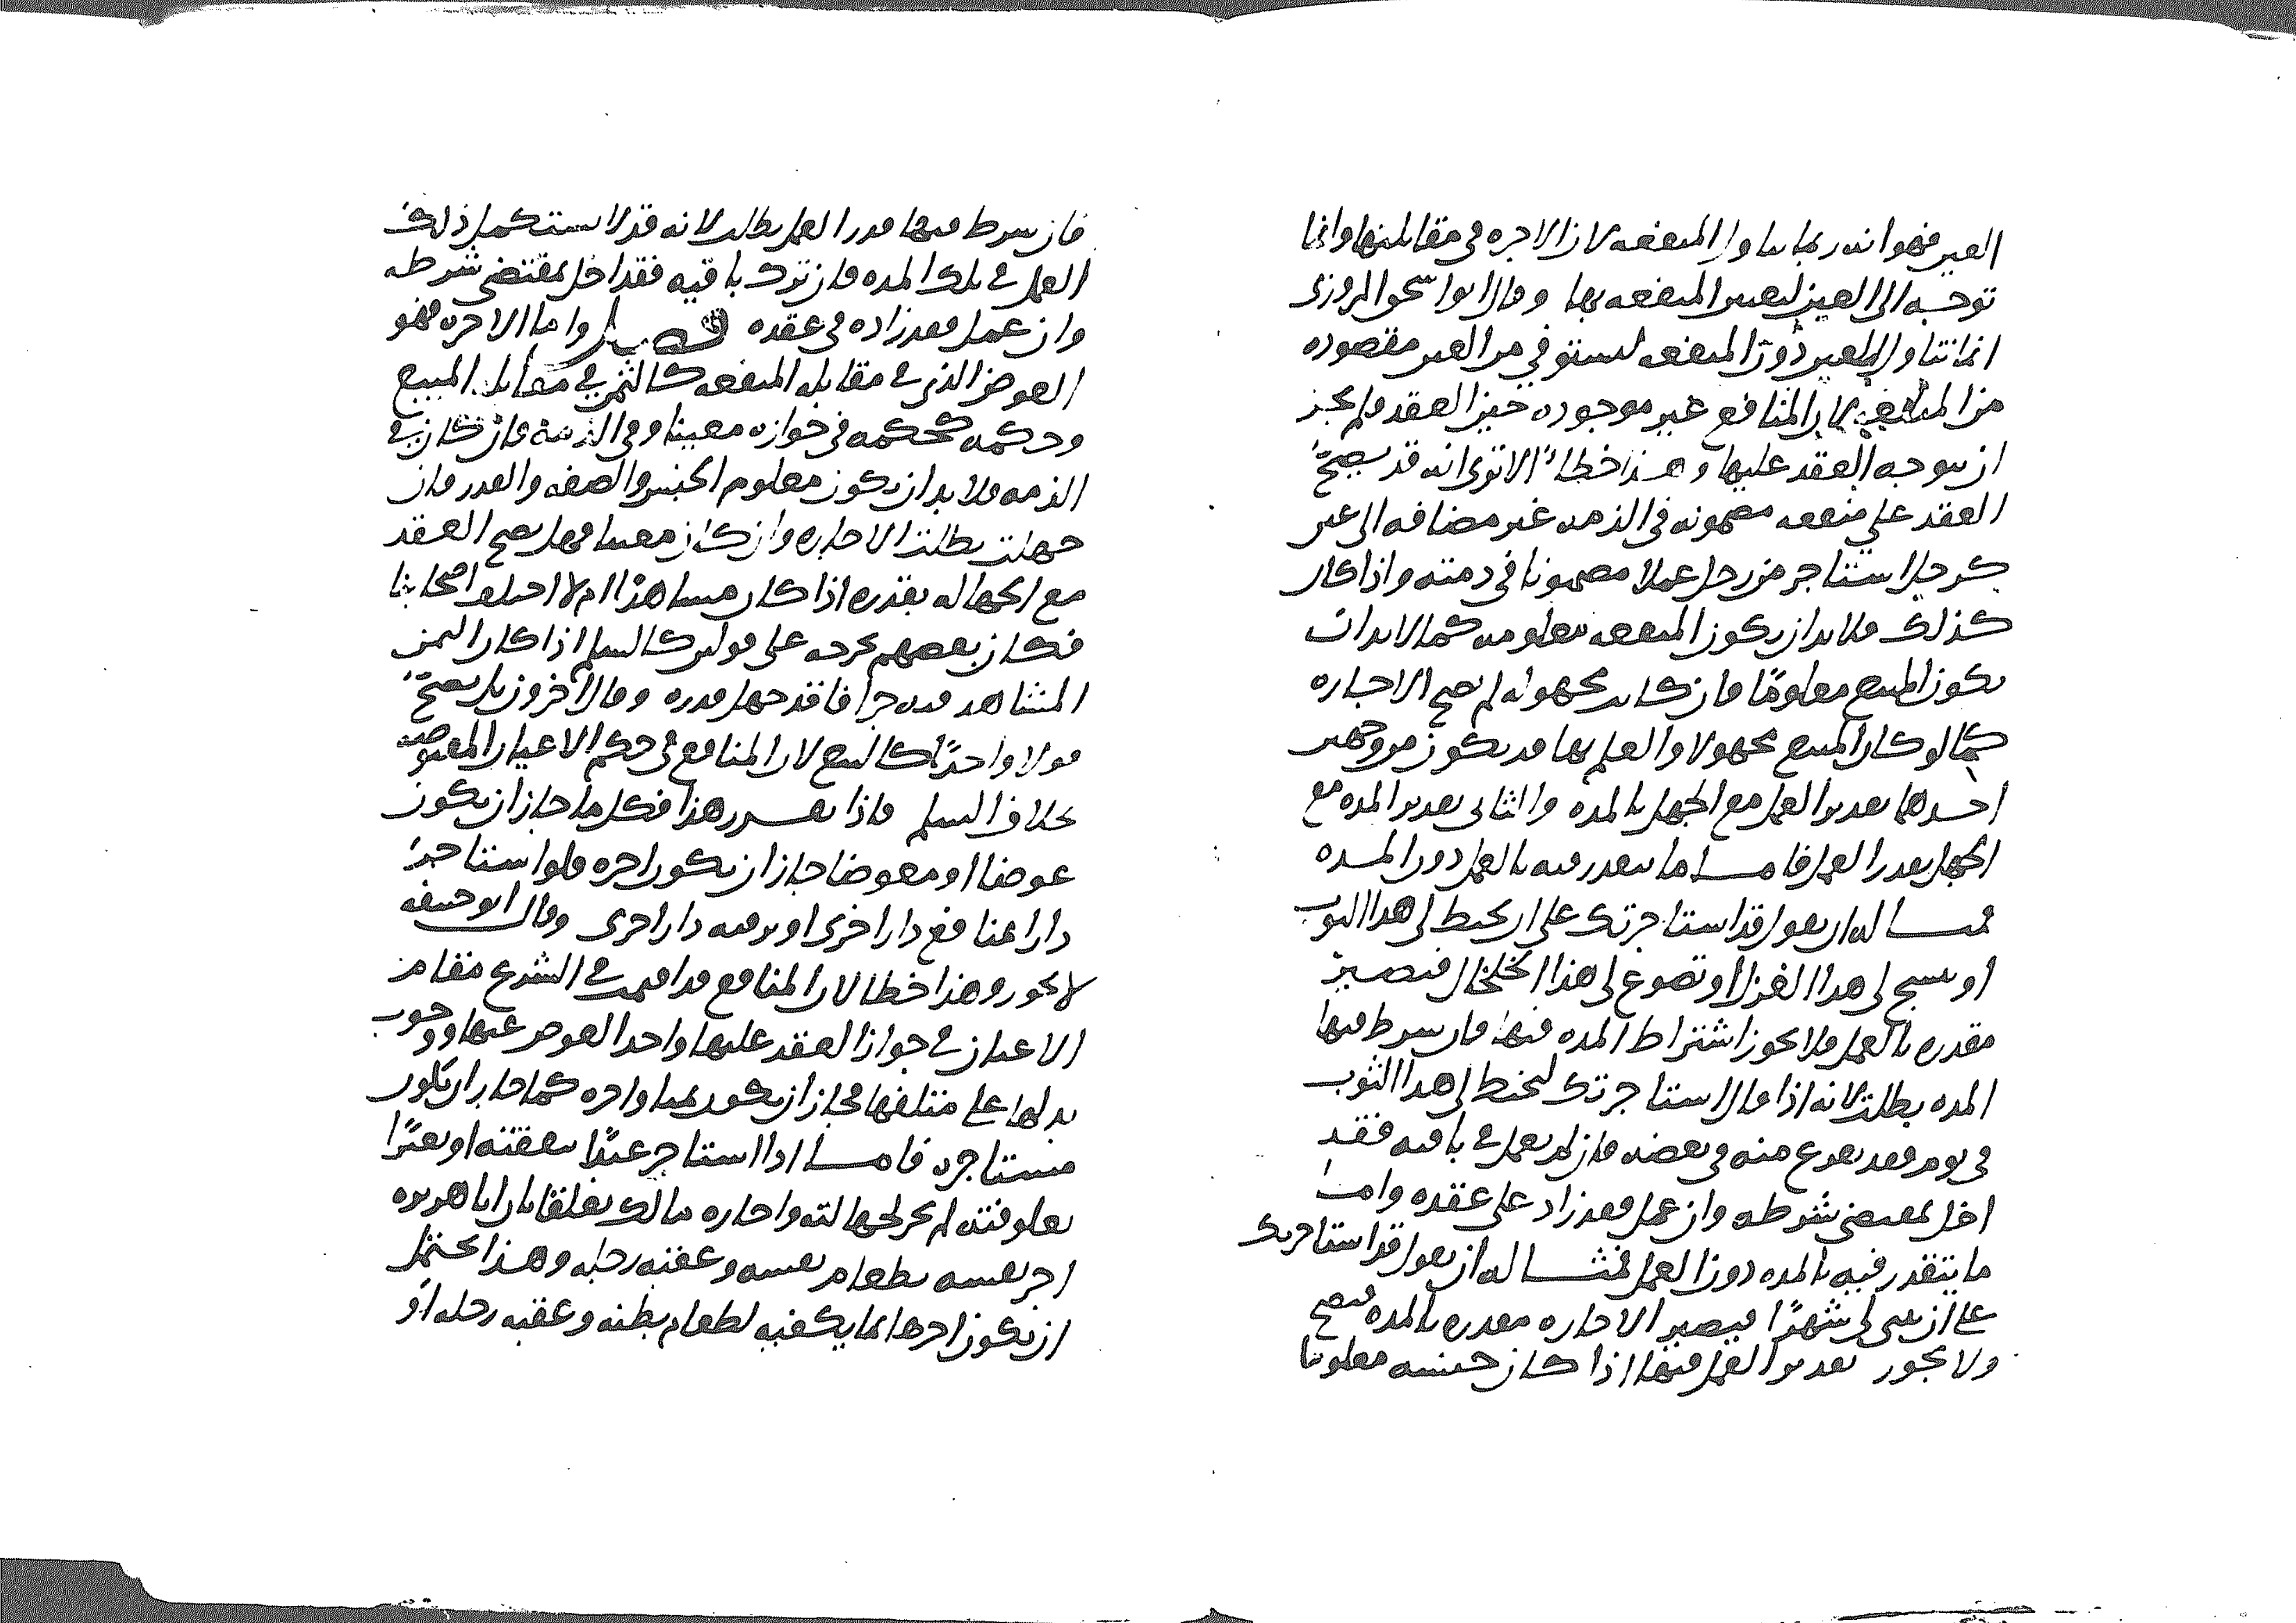 العين فهو انه ربما تناول المنفعه لان الاجره في مقابلتها وانما
توجه الى العين لتعيين المنفعه بها وقال ابو اسحق المروزي
انما تناول العين دون المنفعه ليستوفي من العين مقصوده
من المنافع لان المنافع غير موجوده حين العقد فلم يجز
ان يتوجه العقد عليها وهذا خطأ الا ترى انه قد يصح
العقد على منفعه مضمونه في الذمه غير مضافه الى عين
كرجل استاجر من رجل عملا مضمونا في ذمته واذا كان
كذلك فلا بد ان يكون المنفعه معلومه كما لا بد ان
يكون المبيع معلومًا فان كانت مجهوله لم تصح الاجاره
كما لو كان المبيع مجهولا والعلم بها قد يكون من وجهين
احدهما تقدير العمل مع الجهل بالمده والثاني تقدير المده مع
الجهل بقدر العمل فاما ما يتقدر فيه بالعمل دون المده
فمثاله ان يقول قد استاجرتك على ان تخيط لي هذا الثوب
او تنسج لي هذا الغزل او تصوغ لي هذا الخلخال فتصير
مقدره بالعمل فلا يجوز اشتراط المده فيها فان شرط فيها
المده بطلت لانه اذا قال استاجرتك لتخيط لي هذا الثوب
في يوم فقد يفرغ منه في بعضه فان لم يعمل في باقيه فقد
اخل بمقتضى شرطه وان عمل فقد زاد على عقده واما
ما يتقدر فيه بالمده دون العمل فمثاله ان يقول قد استاجرتك
على ان تبني لي شهرًا فيصير الاجاره مقدره بالمده فيصح
ولا يجوز تقدير العمل فيها اذا كان جنسه معلوما
فان شرط فيها قدر العمل بطلت لانه قد لا يستكمل ذلك
العمل في تلك المده فان ترك باقيه فقد اخل بمقتضى شرطه
وان عمل فقد زاده في عقده فصل واما الاجره فهو
العوض الذي في مقابله المنفعه كالثمن في مقابل المبيع
وحكمه كحكمه في جوازه معينا وفي الذمة فان كان في
الذمه فلا بد ان يكون معلوم الجنس والصفه والقدر فان
جهلت بطلت الاجاره وان كان معينا فهل يصح العقد
مع الجهاله بقدره اذا كان مشاهدا ام لا اختلف اصحابنا
فكان بعضهم يخرجه على قولين كالسلم اذا كان الثمن
المشاهد فيه جزافا قد جهل قدره وقال اخرون بل يصح
قولا واحدًا كالبيع لان المنافع في حكم الاعيان المقبوضه
بخلاف السلم فاذا تقرر هذا فكل ما جاز ان يكون
عوضا او معوضا جاز ان يكون اجره فلو استاجر
دارا بمنافع دار اخرى او برقبه دار اخرى وقال ابو حنيفه
لا يجوز وهذا خطا لان المنافع قد اقيمت في الشرع مقام
الاعيان في جواز العقد عليها واخذ العوض عنها ووجوب
بدلها على متلفها فجاز ان يكون ثمنا واجره كما جاز ان تكون
مستاجره فاما اذا استاجر عبدًا بنفقته او بعيرًا
بعلوفته لم يجز لجهالته واجازه مالك تعلقا بان ابا هريره
اجر نفسه بطعام نفسه وعقبه رجله وهذا يحتمل
ان يكون اجرها بما يكفيه لطعام بطنه وعقبه رجله او